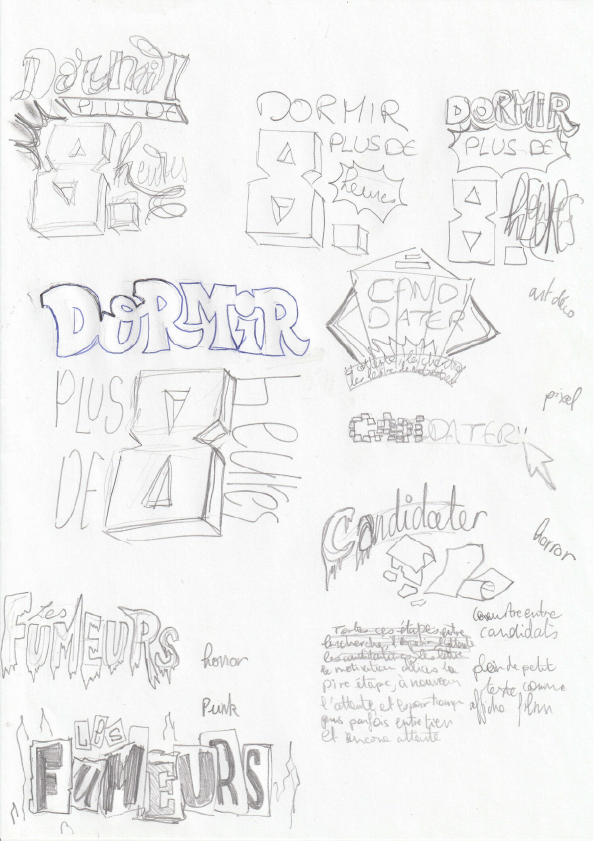 Dormir
PLUS DE
8.
heures
DORMIR
PLUS DE
8.
heures
DORMIR
PLUS DE
8.
heures
DORMIR
PLUS
DE
8
heures
CANDI
DATER
art déco
CANDIDATER
pixel
Candidater
horror
Les
FUMEURS
horror
Punk
LES
FUMEURS
Toutes ces étapes entre
la recherche,
de motivation
pire étape, à nouveau
l'attente et
puis parfois entretien
et encore attente
entre
candidats
plein de petit
texte comme
affiche film